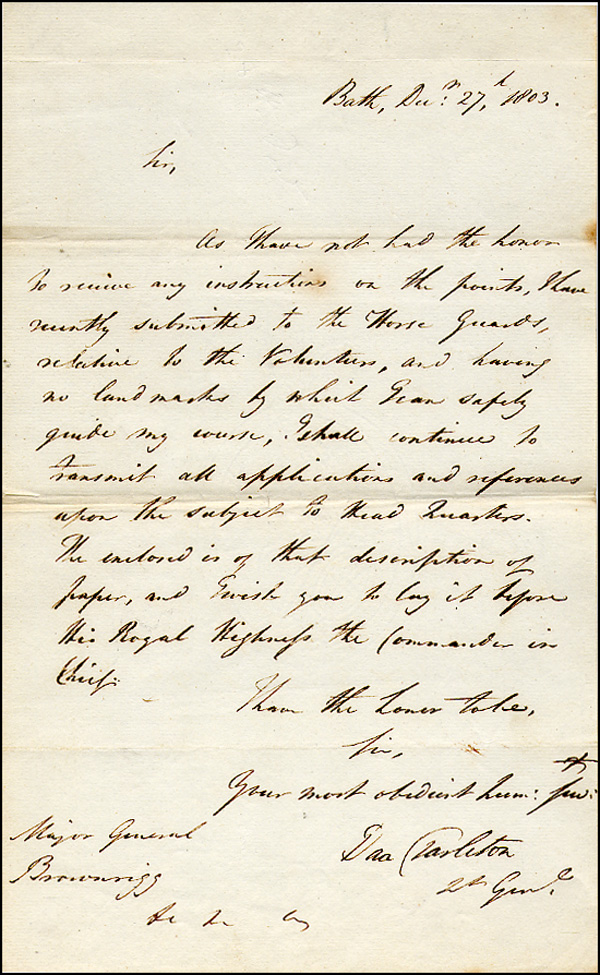 Bath, Decr. 27th, 1803.
Sir,
As I have not had the honor
to receive any instructions on the points, I have
recently submitted to the Horse Guards,
relative to the Volunteers, and having
no landmarks by which I can safely
guide my course, I shall continue to
transmit all applications and references
upon the subject to Head Quarters.
The enclosed is of that description of
paper, and I wish you to lay it before
His Royal Highness the Commander in
Chief.
I have the honor to be,
Sir,
Your most obedient hum: Servt:
Ban Tarleton
Lt Genl.
Major General
Brownrigg
&c &c &c